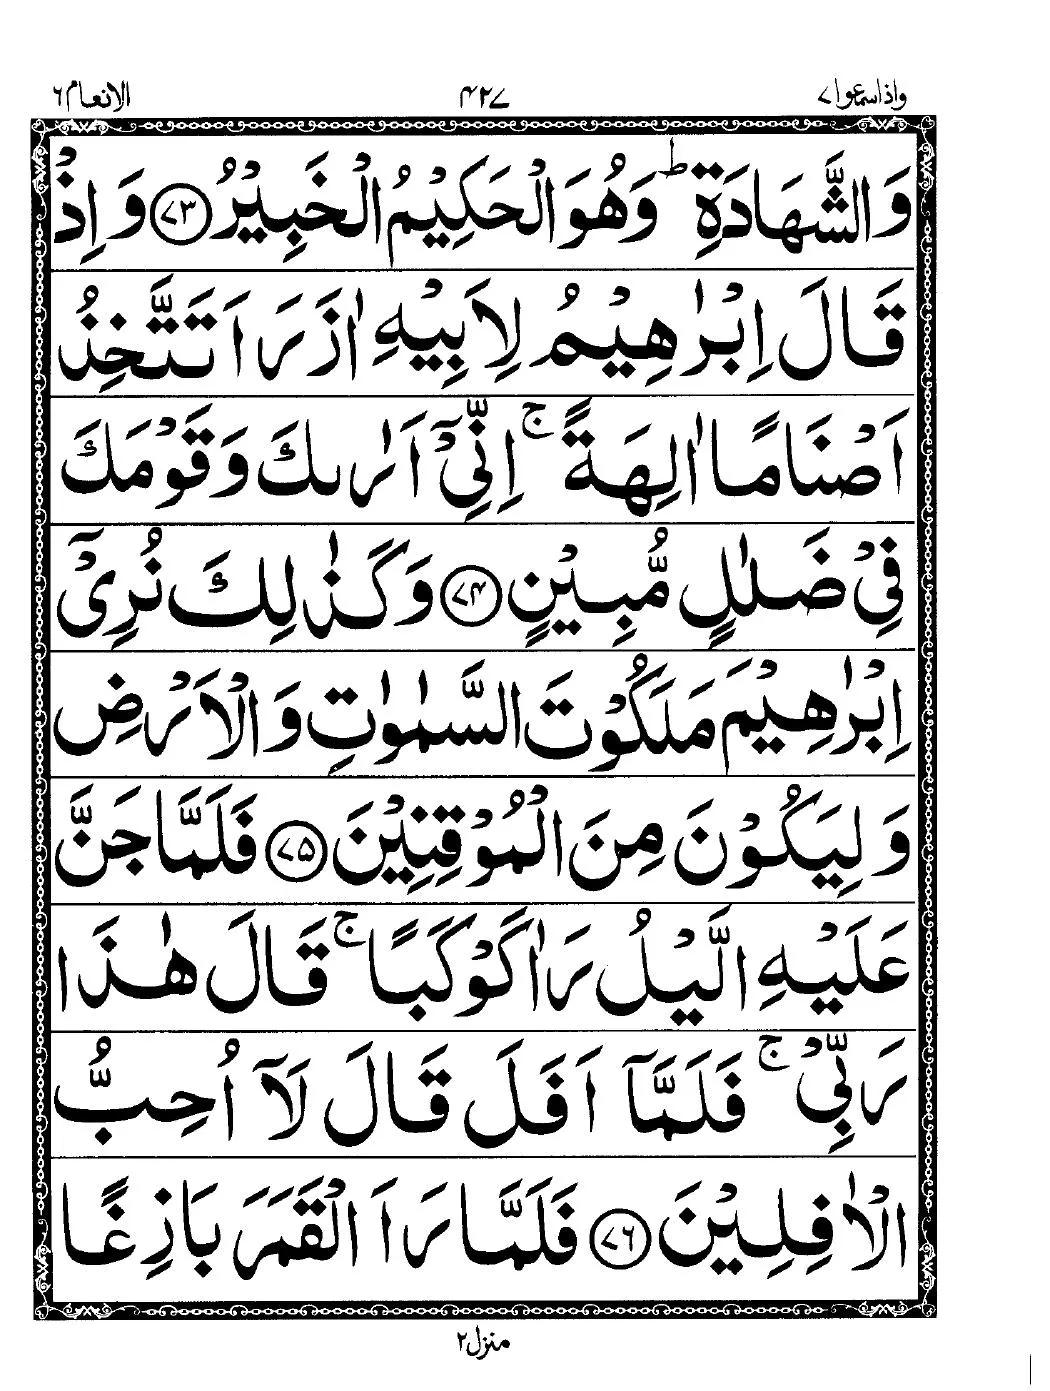 واذاسمعوا۷ ۴۲۷ الانعام۶
وَالشَّهَادَةِ ؕ وَهُوَ الْحَكِيْمُ الْخَبِيْرُ ﴿۷۳﴾ وَ اِذْ
قَالَ اِبْرٰهِيْمُ لِاَبِيْهِ اٰزَرَ اَتَتَّخِذُ
اَصْنَامًا اٰلِهَةً ۚ اِنِّيْۤ اَرٰىكَ وَ قَوْمَكَ
فِيْ ضَلٰلٍ مُّبِيْنٍ ﴿۷۴﴾ وَ كَذٰلِكَ نُرِيْۤ
اِبْرٰهِيْمَ مَلَكُوْتَ السَّمٰوٰتِ وَ الْاَرْضِ
وَ لِيَكُوْنَ مِنَ الْمُوْقِنِيْنَ ﴿۷۵﴾ فَلَمَّا جَنَّ
عَلَيْهِ الَّيْلُ رَاٰ كَوْكَبًا ۚ قَالَ هٰذَا
رَبِّيْ ۚ فَلَمَّاۤ اَفَلَ قَالَ لَاۤ اُحِبُّ
الْاٰفِلِيْنَ ﴿۷۶﴾ فَلَمَّا رَاَ الْقَمَرَ بَازِغًا
منزل۲